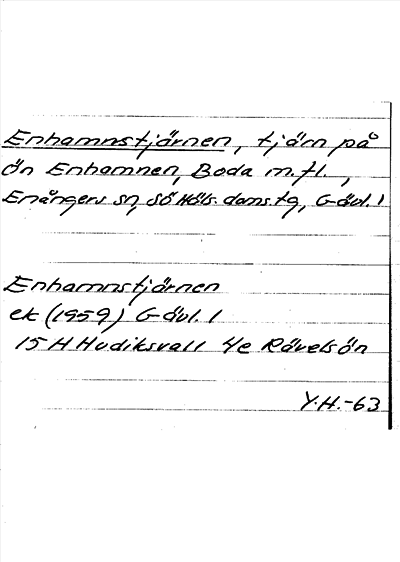 Enhamnstjärnen, tjärn på
ön Enhamnen, Boda m.fl.,
Enångers sn, SÖ Häls. doms.tg, Gävl. l
Enhamnstjärnen
ek (1959) Gävl. l
15 H Hudiksvall 4e Rävelsön
Y.H.-63